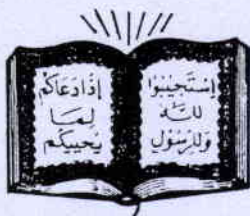 إِسْتَجِيبُوا
لِلَّهِ
وَلِلرَّسُولِ
إِذَا دَعَاكُمْ
لِمَا
يُحْيِيكُم